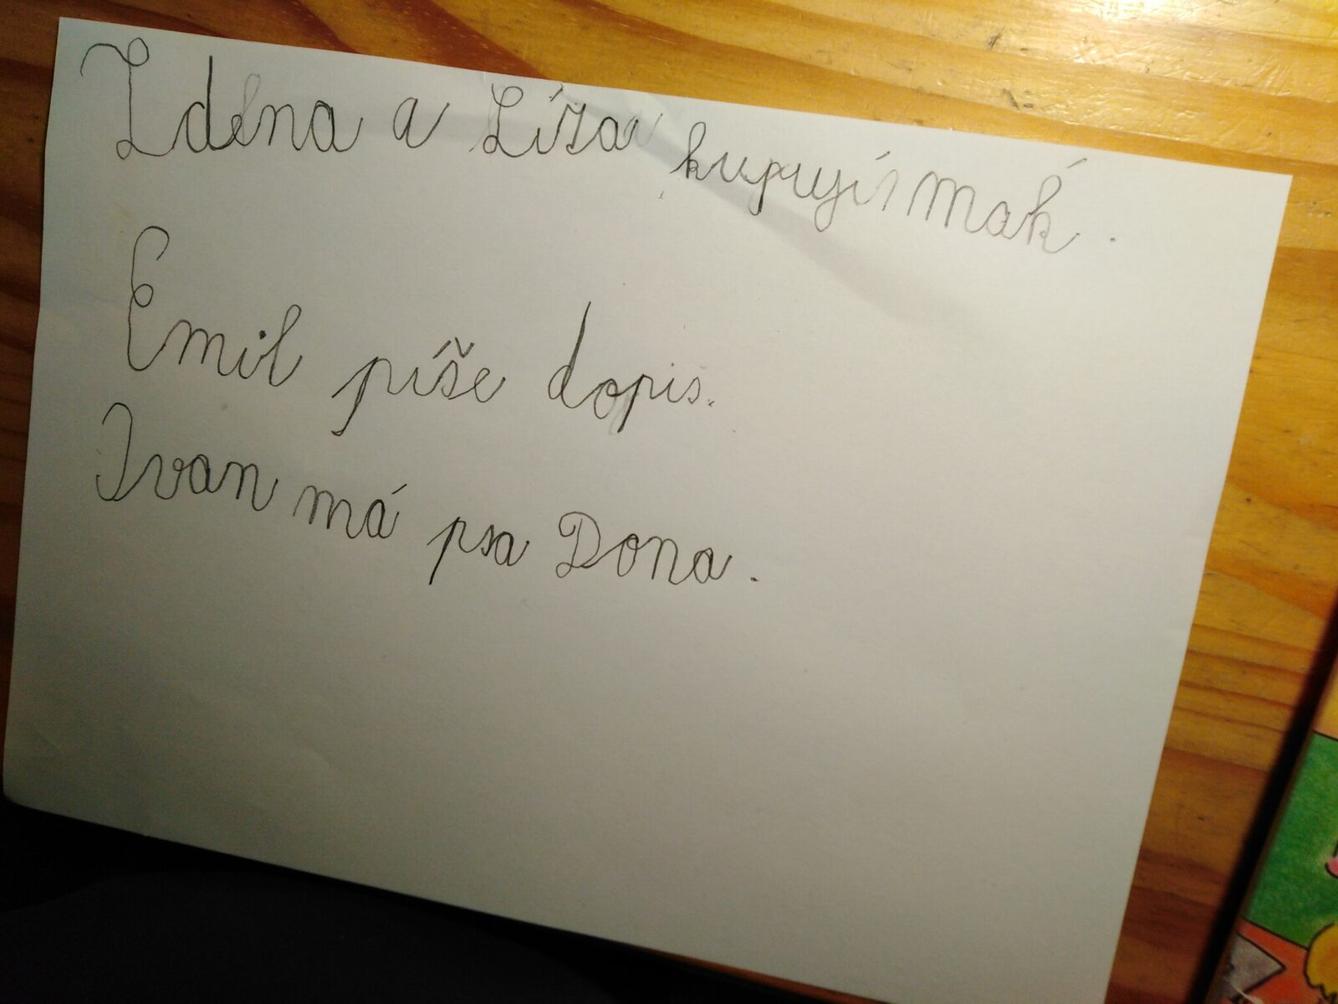 Zdena a Líza kupují mák.
Emil píše dopis.
Ivan má psa Dona.